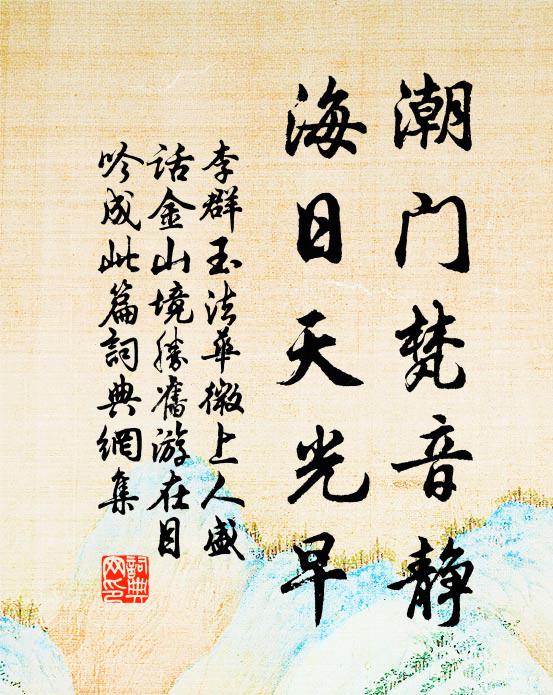 潮门梵音静
海日天光早
李群玉法华微上人盛
话金山境胜旧游在目
吟成此篇词典网集
词典
网印